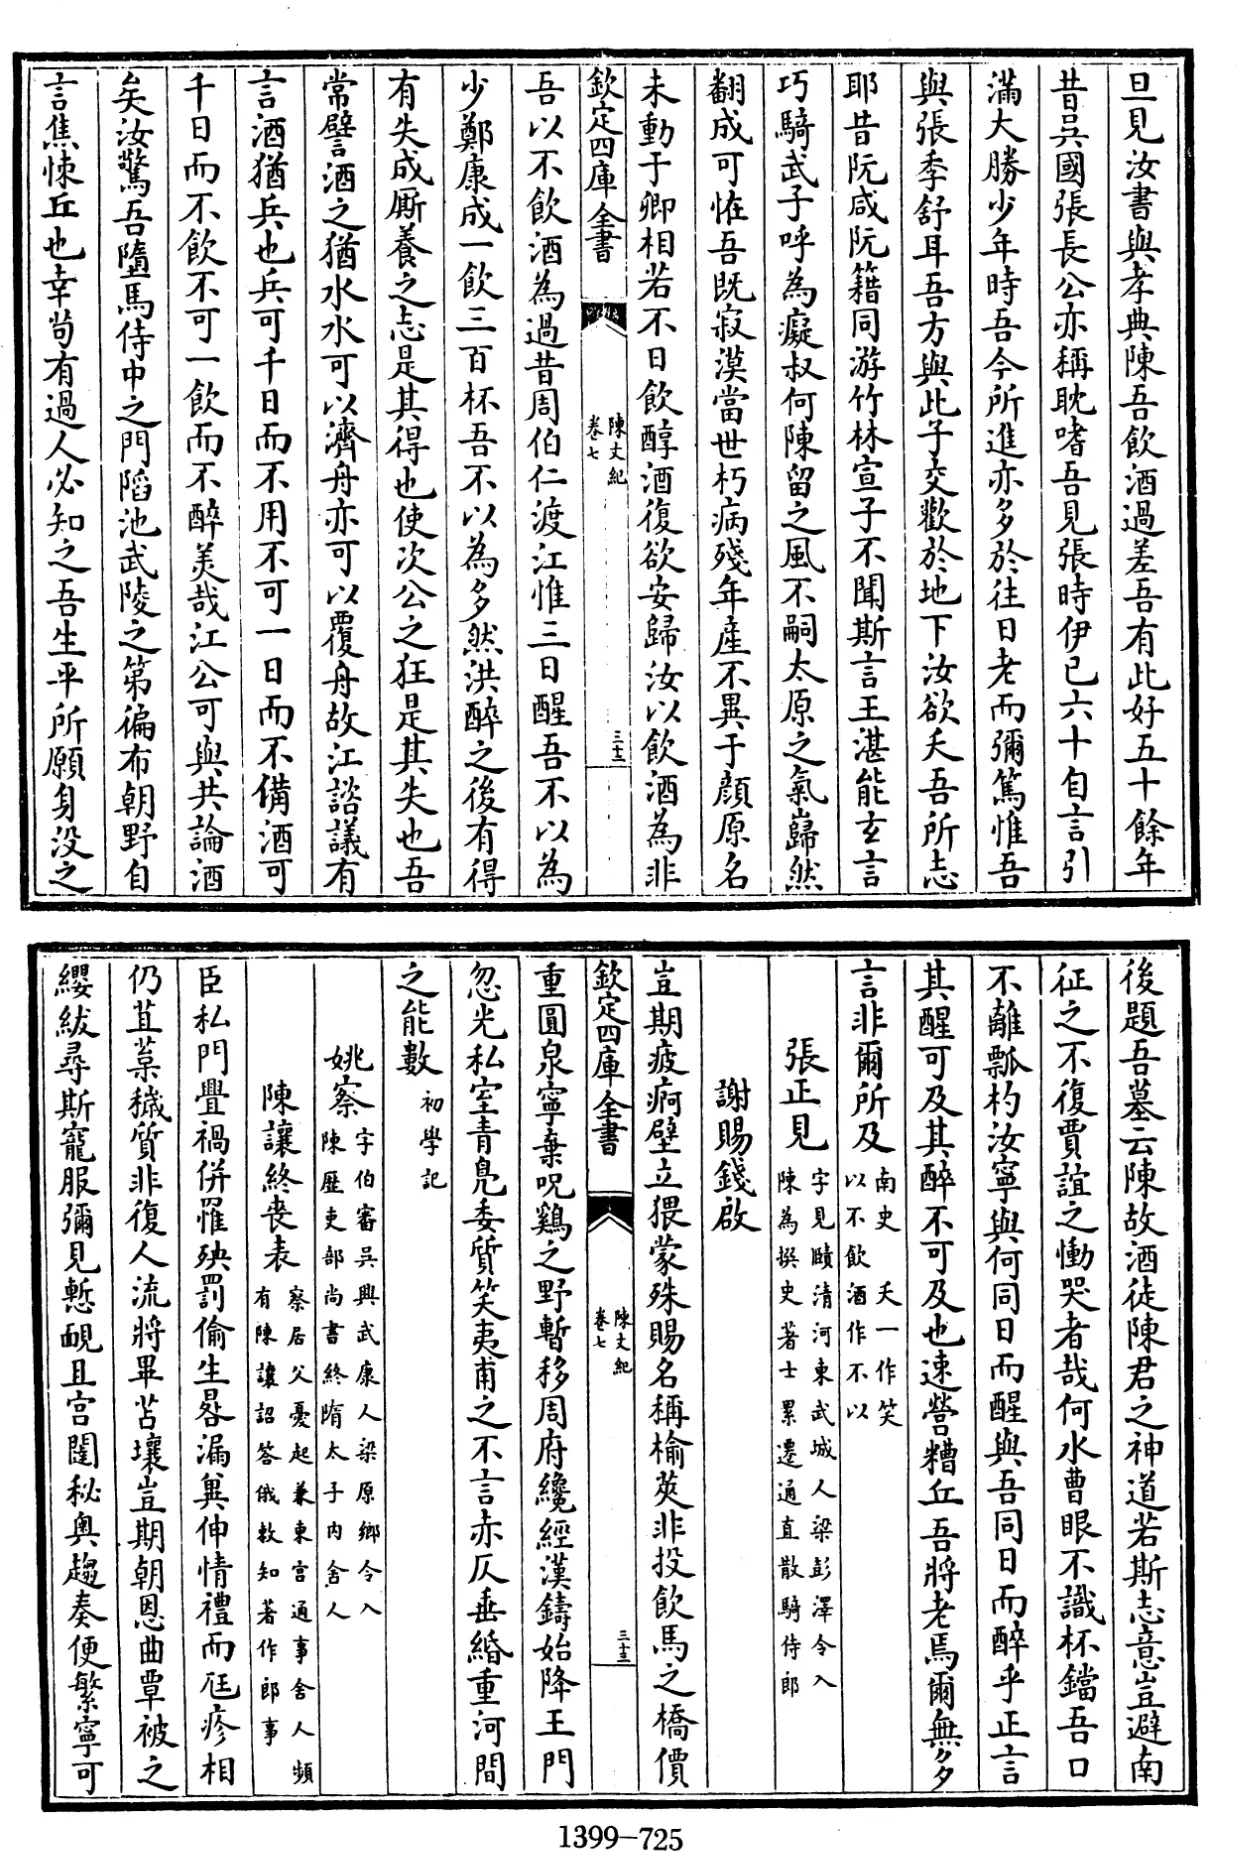 旦見汝書與孝典陳吾飲酒過差吾有此好五十餘年
昔吳國張長公亦稱耽嗜吾見張時伊已六十自言引
滿大勝少年時吾今所進亦多於往日老而彌篤惟吾
與張季舒耳吾方與此子交歡於地下汝欲夭吾所志
耶昔阮咸阮籍同游竹林宣子不聞斯言王湛能玄言
巧騎武子呼為癡叔何陳留之風不嗣太原之氣巋然
翻成可怪吾既寂漠當世朽病殘年産不異于顔原名
未動于卿相若不日飲醇酒復欲安歸汝以飲酒為非
欽定四庫全書
陳文紀
卷七
三十二
吾以不飲酒為過昔周伯仁渡江惟三日醒吾不以為
少鄭康成一飲三百杯吾不以為多然洪醉之後有得
有失成厮養之志是其得也使次公之狂是其失也吾
常譬酒之猶水水可以濟舟亦可以覆舟故江諮議有
言酒猶兵也兵可千日而不用不可一日而不備酒可
千日而不飲不可一飲而不醉美哉江公可與共論酒
矣汝驚吾墮馬侍中之門陷池武陵之第徧布朝野自
言焦悚丘也幸苟有過人必知之吾生平所願身没之
後題吾墓云陳故酒徒陳君之神道若斯志意豈避南
征之不復賈誼之慟哭者哉何水曹眼不識杯鐺吾口
不離瓢杓汝寧與何同日而醒與吾同日而醉乎正言
其醒可及其醉不可及也速營糟丘吾將老焉爾無多
言非爾所及
南史 夭一作笑
以不飲酒作不以
張正見
字見賾清河東武城人梁彭澤令入
陳為撰史著士累遷通直散騎侍郎
謝賜錢啟
豈期疲痾壁立猥蒙殊賜名稱榆莢非投飲馬之橋價
欽定四庫全書
陳文紀
卷七
三十三
重圓泉寧棄呪鷄之野暫移周府纔經漢鑄始降王門
忽光私室青鳧委質笑夷甫之不言赤仄垂緡重河間
之能數
初學記
姚察
字伯審吳興武康人梁原鄉令入
陳歴吏部尚書終隋太子内舍人
陳讓終喪表
察居父憂起兼東宫通事舍人頻
有陳讓詔答俄敕知著作郎事
臣私門舋禍併罹殃罰偷生晷漏兾伸情禮而尫疹相
仍苴菒穢質非復人流將畢苫壤豈期朝恩曲覃被之
纓紱尋斯寵服彌見慙靦且宫闥秘奥趨奏便繁寧可
1399-725